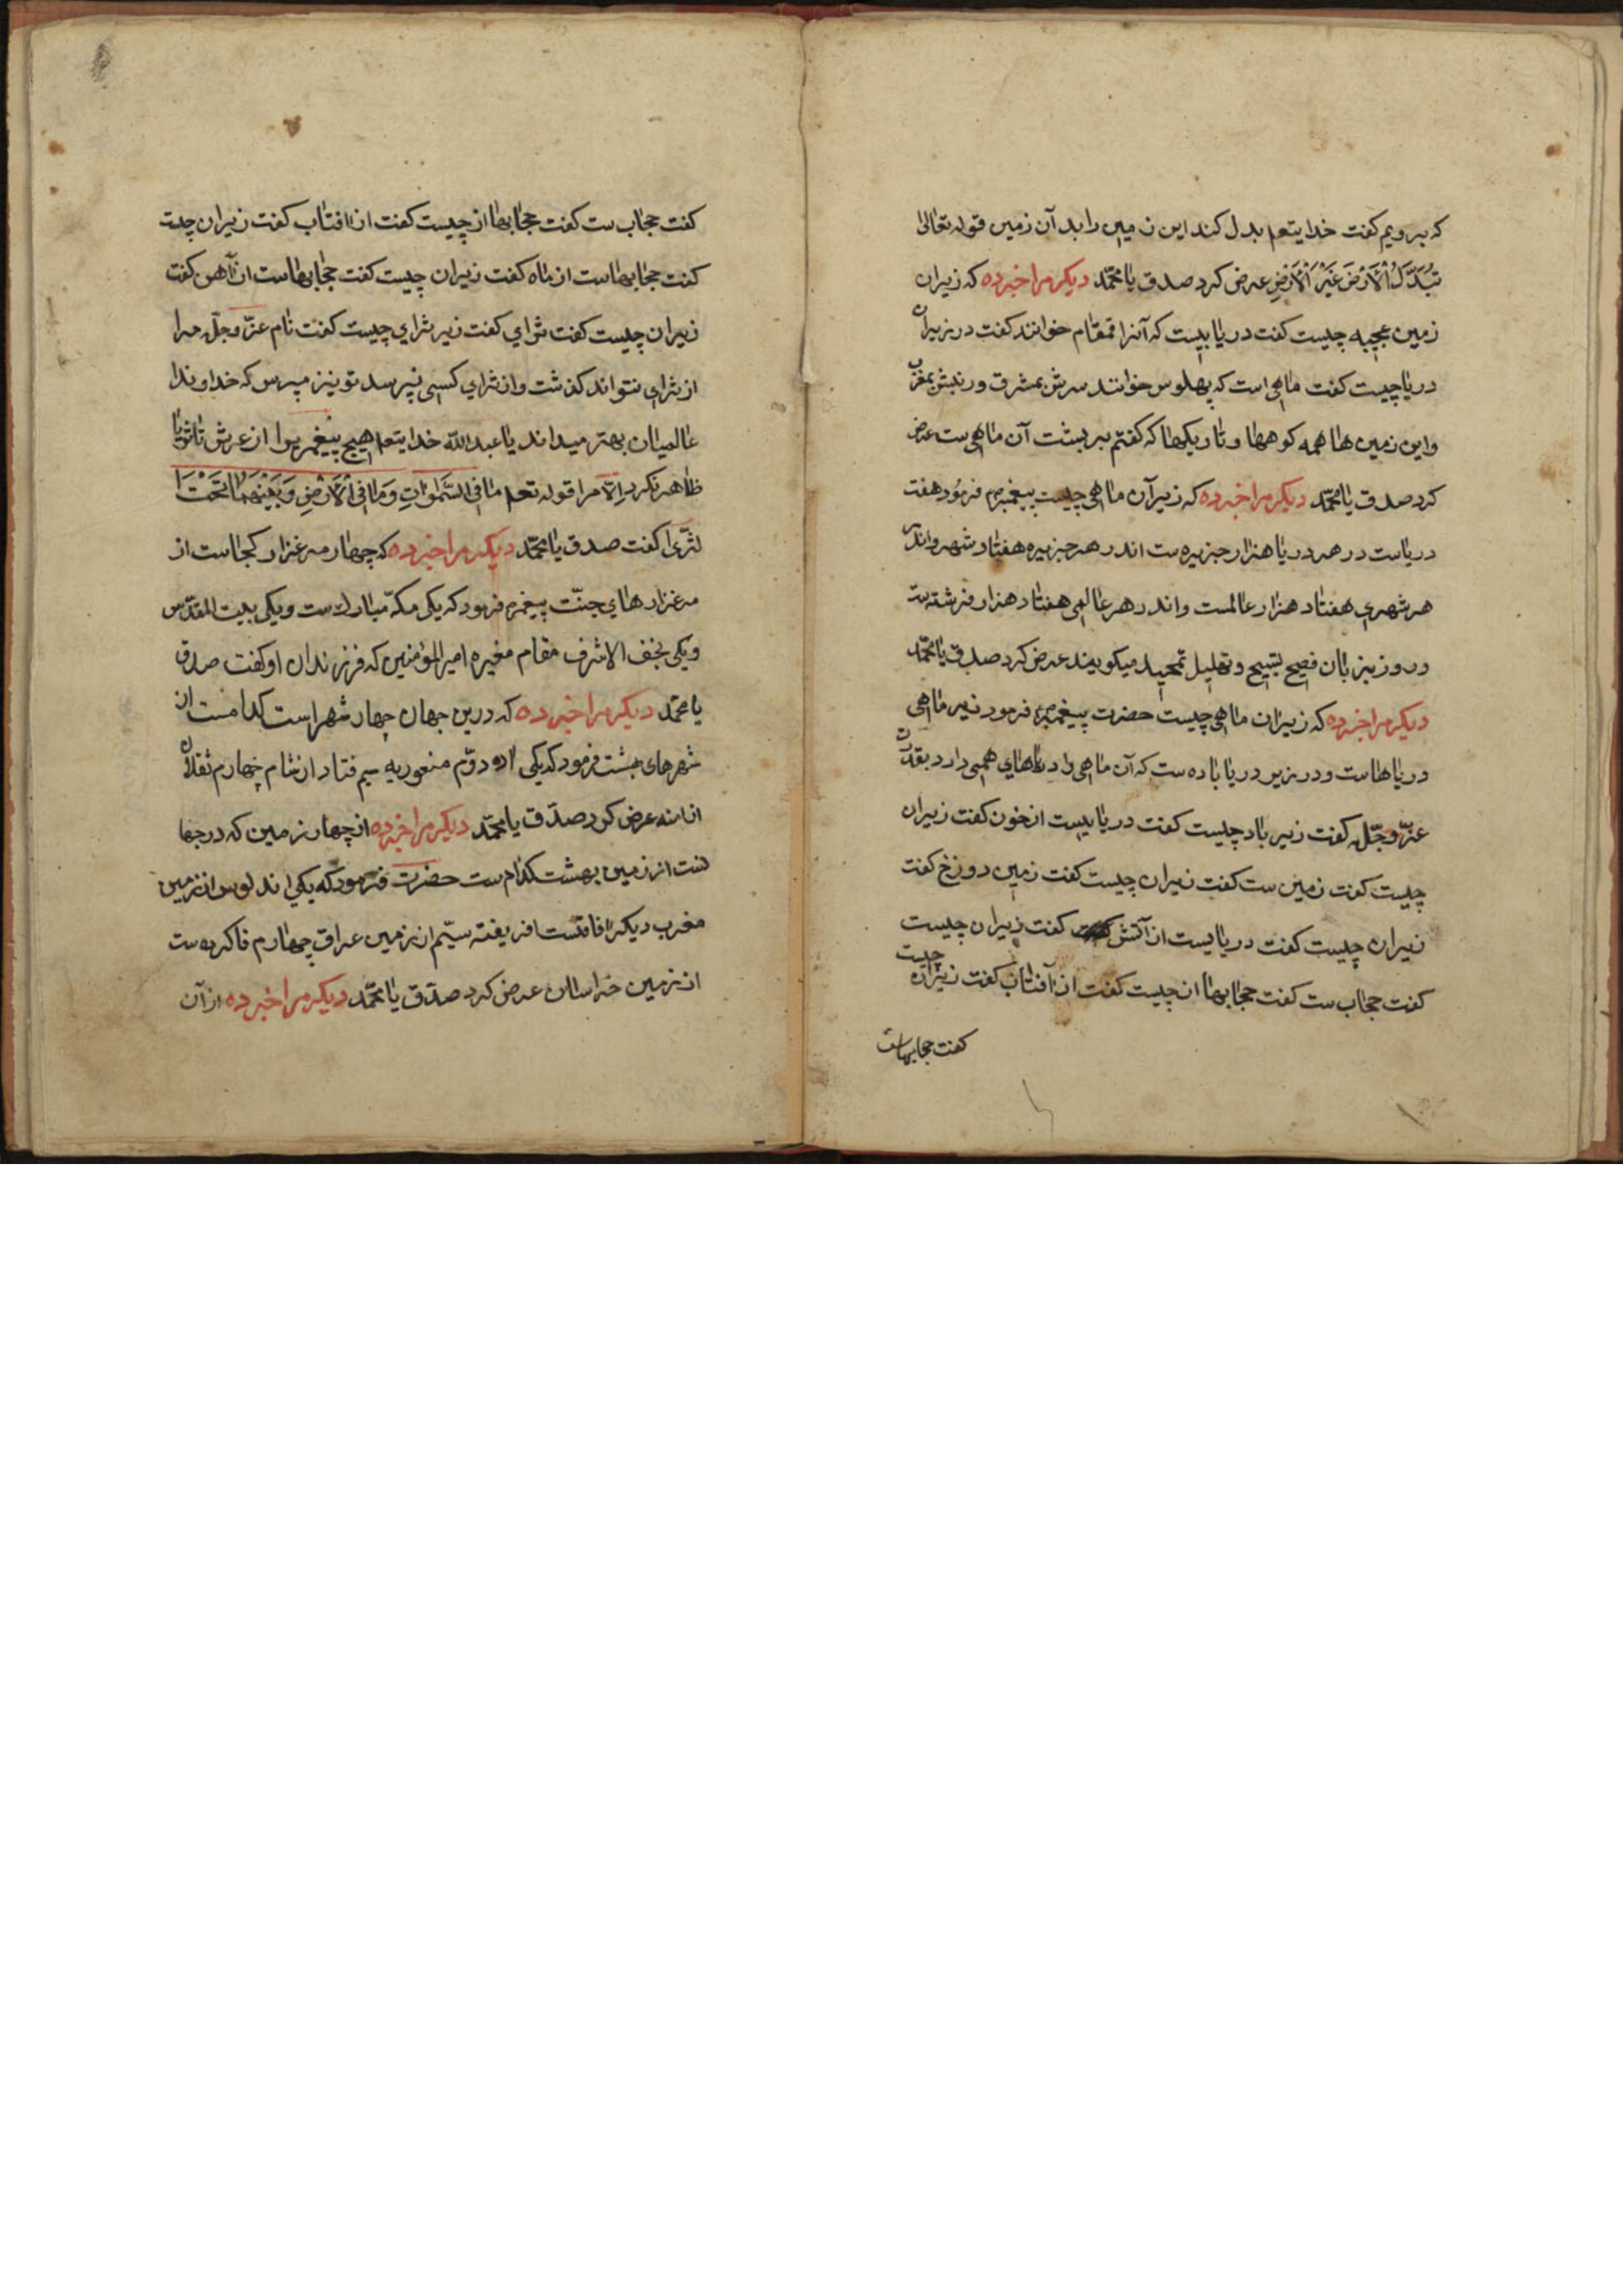 که برویم کفت خدایتعم بدل کند این زمین را بد آن زمین قوله تعالی
تُبَدَّلُ الْأَرْضَ غَیْرَ الْأَرْضِ عرض کرد صدق یا محمّد دیکر مرا خبر ده که زیران
زمین عجبه چیست کفت دریاییست که آنرا قمقام خوانند کفت در زیران
دریا چیست کفت ماهی است که بهلوس خوانند سرش بمشرق ورنبش بمغرب
واین زمین ها همه کوهها و تاریکیها که کفتم بر پشت آن ماهی ست عرض
کرد صدق یا محمّد دیکر مرا خبر ده که زیر آن ماهی چیست پیغمبرم فرمود هفت
دریاست در هر دریا هزار جزیره ست اندر هر جزیره هفتاد شهر واندر
هر شهری هفتاد هزار عالمست واندر هر عالمی هفتاد هزار فرشته ست
وروز بزبان فصیح بتسبیح وتهلیل تمجید میکویند عرض کرد صدق یا محمّد
دیکر مرا خبر ده که زیران ماهی چیست حضرت پیغمبرم فرمود زیر ماهی
دریاهاست ودر زیر دریا باده ست که آن ماهی را دریاهای همی دارد بقدرت
عزّ وجّل کفت زیر باد چیست کفت دریاییست از خون کفت زیران
چیست کفت زمین ست کفت زیران چیست کفت زمین دوزخ کفت
زیران چیست کفت دریاییست از آتش کفت زیران چیست
کفت حجاب ست کفت حجابها از چیست کفت از آفتاب کفت زیران چیست
کفت حجابهاست
کفت حجاب ست کفت حجابها از چیست کفت از افتاب کفت زیران چیت
کفت حجابهاست از ماه کفت زیران چیست کفت حجابهاست از آهن کفت
زیران چیست کفت ثرای کفت زیر ثرای چیست کفت نام عزّ وجلّ مرا
از ثرای نتواند کذشت واز ثرای کسی نپرسد تو نیز مپرس که خداوندا
عالمیان بهتر میداند یا عبد الله خدایتعم هیچ پیغمبر را از عرش تا ثریا
ظاهر نکرد اِلّا مرا قوله تعم مَا فِی السَّمٰوَاتِ وَمَا فِی الْأَرْضِ وَبَیْنَهُمَا تَحْتَ ا
لثّری کفت صدق یا محمّد دیکر مرا خبر ده که چهار مرغزار کجاست از
مرغزارهای جنّت پیغمبرم فرمود که یکی مکّه مبارک ست ویکی بیت المقدّس
ویکی نجف الاشرف مقام مغیره امیر المؤمنین که فرزندان او کفت صدق
یا محمّد دیکر مرا خبر ده که درین جهان چهار شهر است کدامست از
شهرهای بهشت فرمود که یکی دوّم منصوریه سیم فتاد از شام چهارم
عرض کرد صدّق یا محمّد دیکر مرا خبر ده از چهار زمین که در جها
نست از زمین بهشت کدام ست حضرت فرمود که یکی اندلوس از زمین
مغرب دیکر فاقست افریفته سیّم از زمین عراق چهارم فاکرده ست
از زمین خراسان عرض کرد صدّق یا محمّد دیکر مرا خبر ده از آن